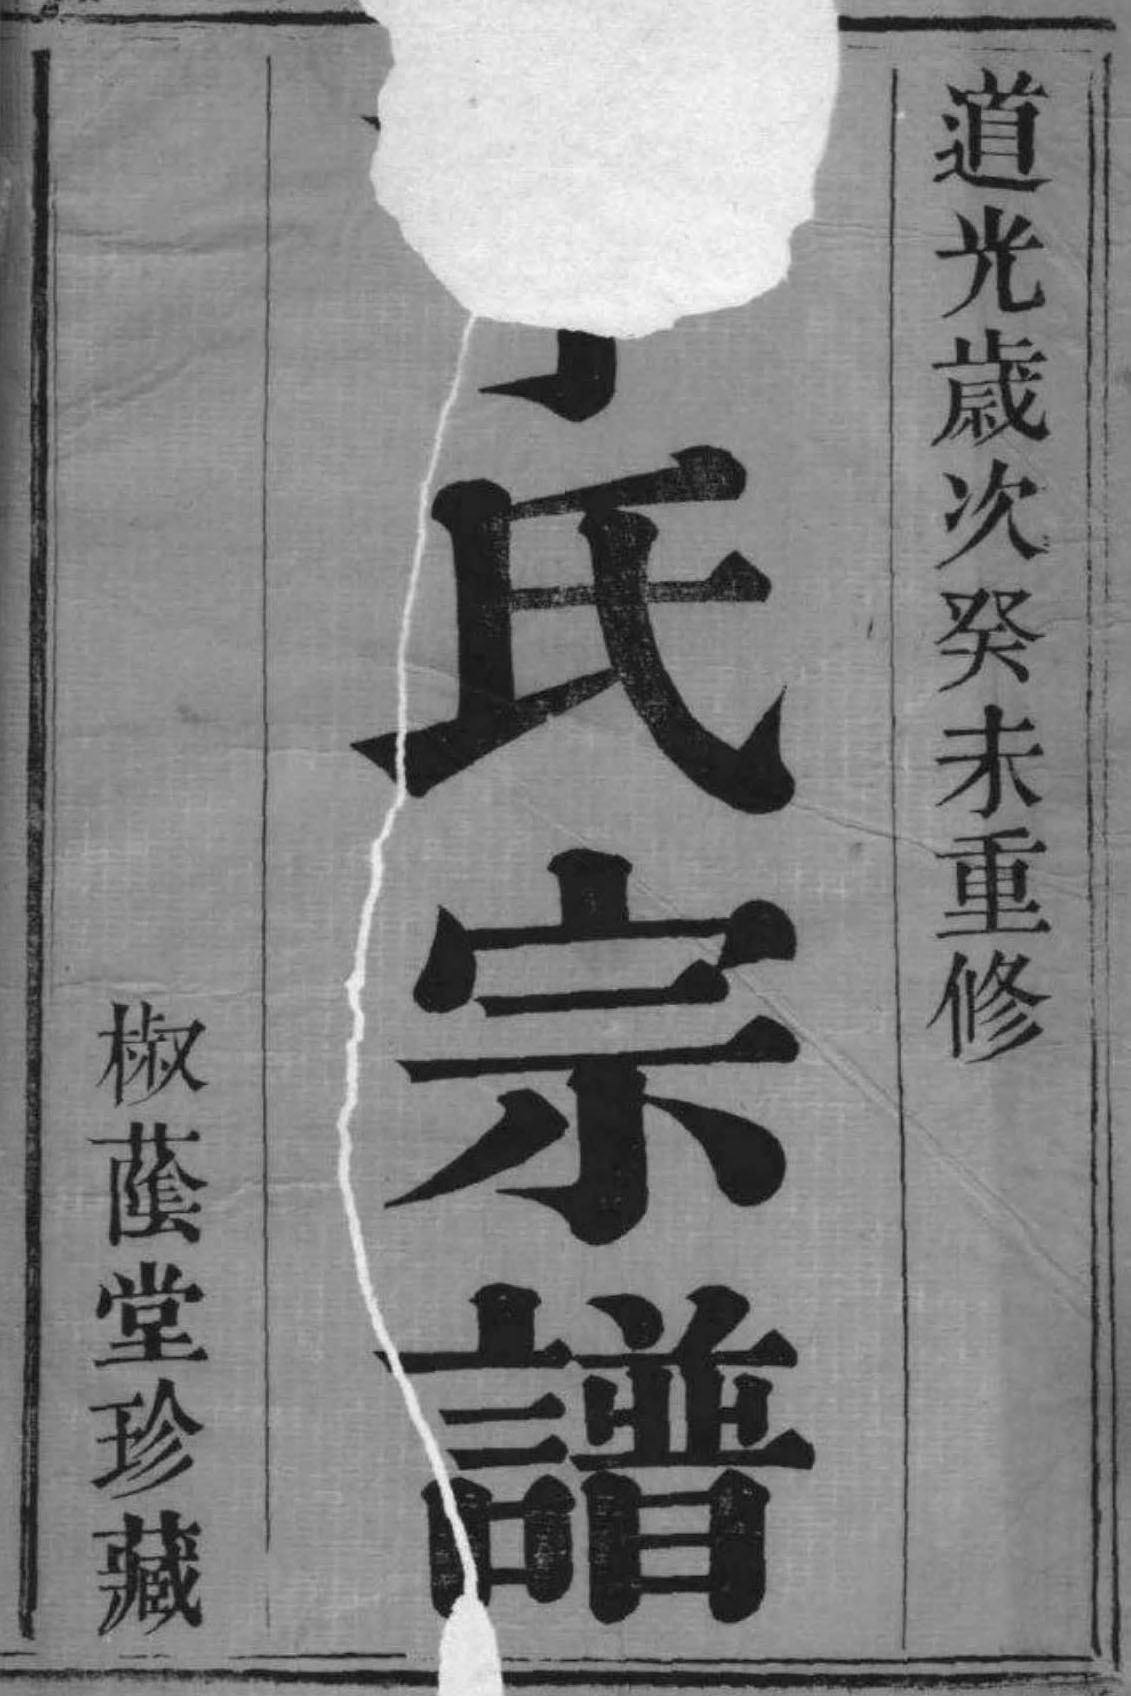 道光歲次癸未重修
氏宗譜
椒蔭堂珍藏